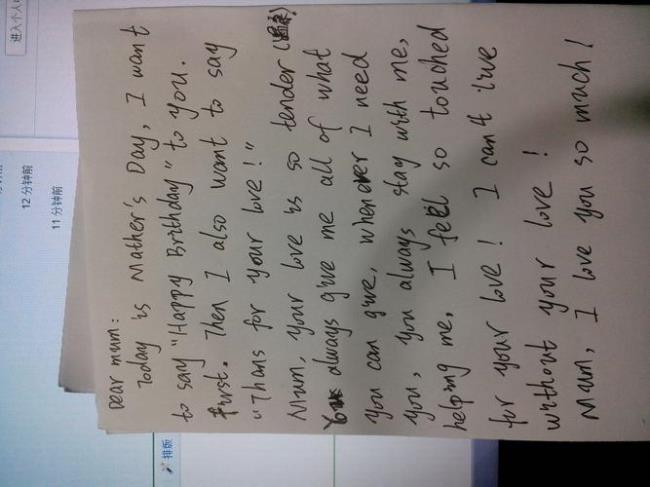 Dear mum:
Today is Mather's Day, I want
to say "Happy Brithday" to you.
first. Then I also want to say
"Thans for your love!"
Mum, your love is so tender (温柔)
You always give me all of what
you can give, whenever I need
you, you always stay with me,
helping me. I feel so touched
for your love! I can't live
without your love!
Mum, I love you so much!
进入个人
12 分钟前
11 分钟前
排版